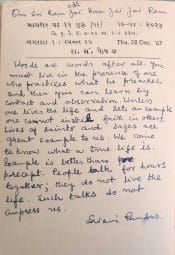 ॐ
Om Sri Ram Jai Ram Jai Jai Ram
Thu 28 Dec. '67
Words are words after all. You
must live in the presence of one
who practices what he preaches,
and then you can learn by
contact and observation. Unless
one lives the life and sets an example
one cannot instil faith in others.
Lives of saints and sages are
great example to us. We come
to know what a true life is.
Example is better than
precept. People talk for hours
together; they do not live the
life. Such talks do not
impress us.
Swami Ramdas.